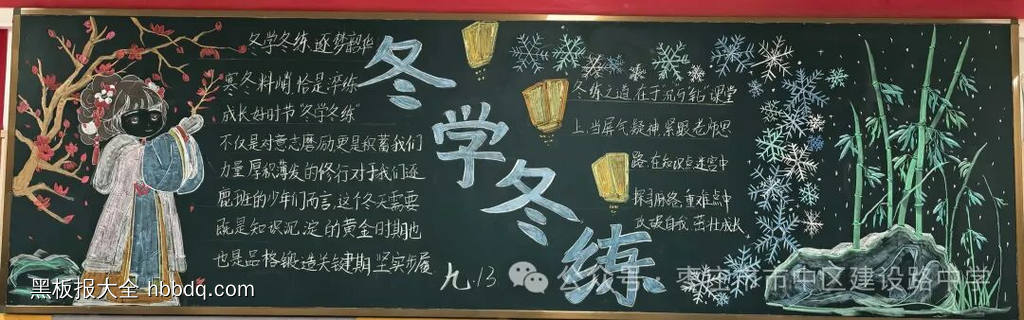 冬学冬练,逐梦韶华
寒冬料峭恰是淬练
成长好时节"冬学冬练"
不仅是对意志磨励更是积蓄我们
力量厚积薄发的修行对于我们逐
鹿班的少年们而言,这个冬天需要
既是知识沉淀的黄金时期也
也是品格锻造关键期坚实步履
冬学冬练
九.13
冬练之道在于沉可钻 课堂
上,当屏气凝神紧跟老师思
路,在知识点迷宫中
探寻脉络,重难点中
突破自我 茁壮成长
黑板报大全-hbbdq.com
公众号 · 枣庄市市中区建设路中学